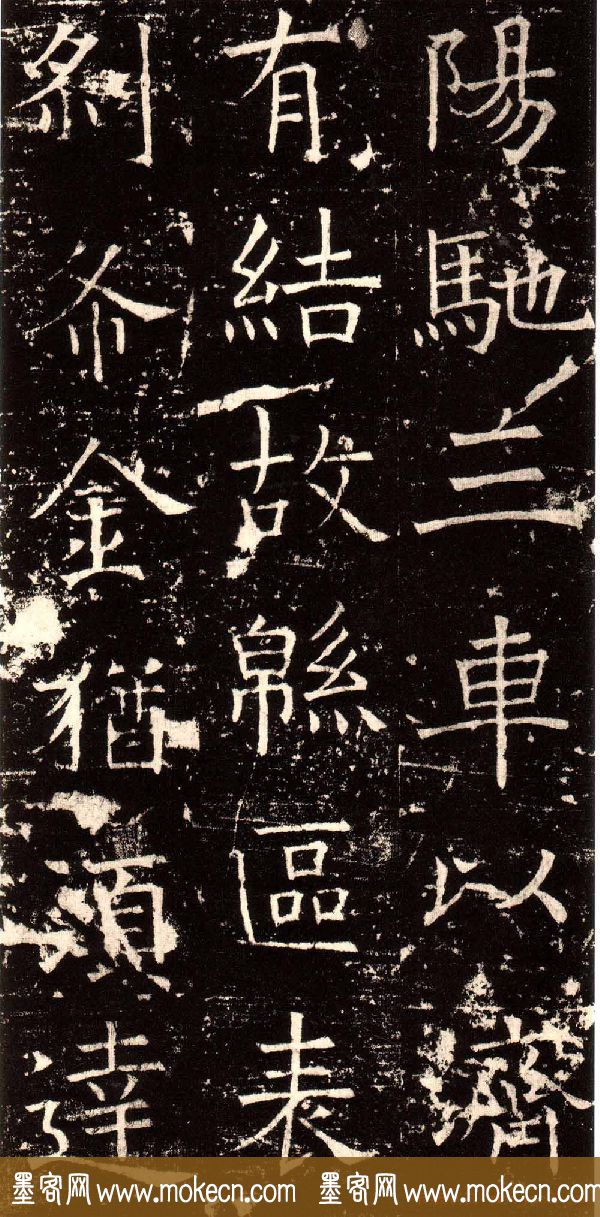 陽馳三車以濟
有結故緜區表
刹布金猶須達
墨客网 www.mokecn.com 墨客网 www.mokecn.com